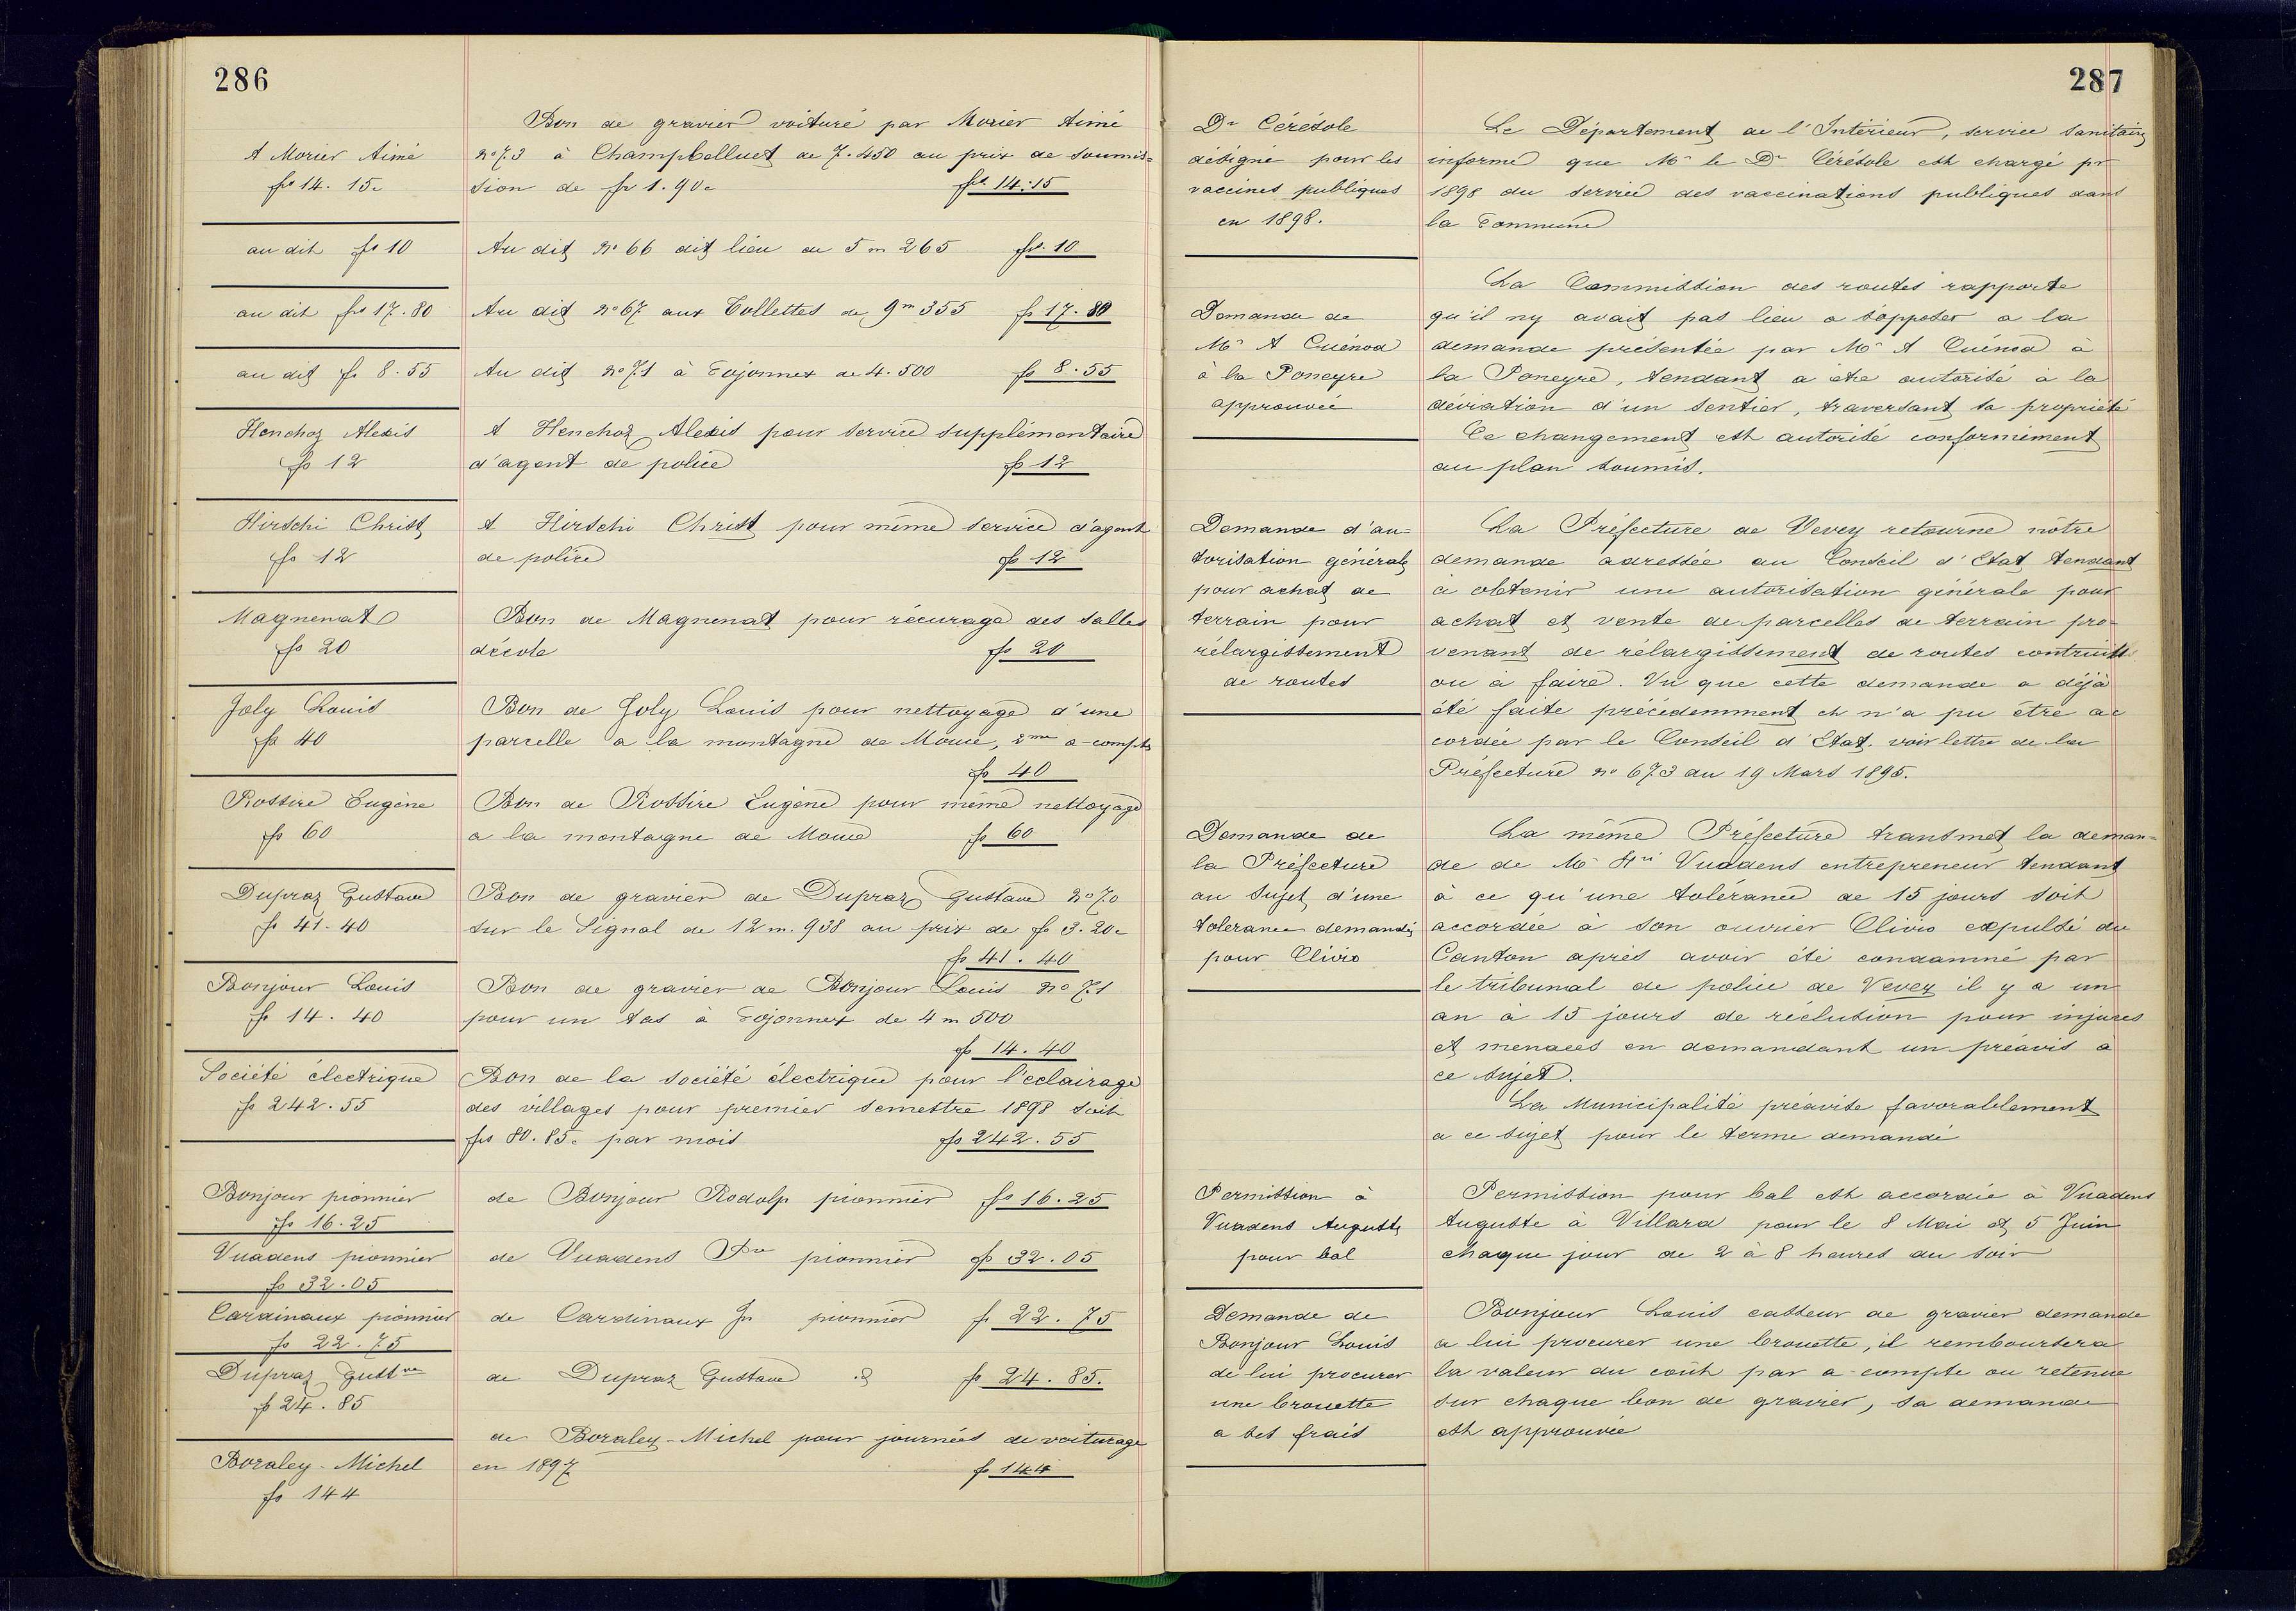 286
A Morier Aimé
frs 14. 15c
Bon de gravier voituré par Morier Aimé
No 73 à Champbelluet de 7.450 au prix de soumis=
sion de fr 1.90c frs 14.15
au dit fs 10
Au dit No 66 dit lieu de 5 m 265 frs. 10
au dit frs 17.80
Au dit No 67 aux Collettes de 9m 355 fr 17.80
au dit fr 8.55
Au dit No 71 à Fojonnex de 4.500 fr 8.55
Henchoz Alexis
fs 12
A Henchoz Alexis pour service supplémentaire
d'agent de police fs 12
Hirschi Christ
fs 12
A Hirschi Christ pour même service d'agent
de police fs 12
Magnenat
fs 20
Bon de Magnenat pour récurage des salles
d'école fs 20
Joly Louis
fs 40
Bon de Joly Louis pour nettoyage d'une
parcelle a la montagne de Mouce, 2me a-compte
fs 40
Rossire Eugène
fs 60
Bon de Rossire Eugène pour même nettoyage
a la montagne de Mouce fs 60
Dupraz Gustave
fr 41.40
Bon de gravier de Dupraz Gustave No 70
sur le Signal de 12 m. 938 au prix de fr 3.20c
fs 41.40
Bonjour Louis
fr 14.40
Bon de gravier de Bonjour Louis No 71
pour un tas à Fojonnex de 4 m 500
fs 14.40
Société électrique
fs 242.55
Bon de la société électrique pour l'éclairage
des villages pour premier semestre 1898 soit
frs 80.85c par mois fs 242.55
Bonjour pionnier
frs 16.25
de Bonjour Rodolp pionnier fs 16.25
Vuadens pionnier
fs 32.05
de Vuadens Pre pionnier fs 32.05
Cardinaux pionnier
fs 22.75
de Cardinaux Jn pionnier fr 22.75
Dupraz Gustve
fs 24.85
de Dupraz Gustave fs 24.85.
Boraley-Michel
fs 144
de Boraley-Michel pour journées de voiturage
en 1897 fs 144
287
Dr Cérésole
désigné pour les
vaccines publiques
en 1898.
Le Département de l'Intérieur, service sanitaire
informe que Mr le Dr Cérésole est chargé pr
1898 du service des vaccinations publiques dans
la Commune
Demande de
Mr A Cuénod
à la Poneyre
approuvée
La Commission des routes rapporte
qu'il ny avait pas lieu a s'opposer a la
demande présentée par Mr A Cuénod à
la Poneyre, tendant a être autorisé à la
déviation d'un sentier, traversant sa propriété
Ce changement est autorisé conformément
au plan soumis.
Demande d'au=
torisation générale
pour achat de
terrain pour
rélargissement
de routes
La Préfecture de Vevey retourne nôtre
demande adressée au Conseil d'Etat tendant
à obtenir une autorisation générale pour
achat et vente de parcelles de terrain pro-
venant de rélargissement de routes contruites
ou à faire. Vu que cette demande a déjà
été faite précédemment et n'a pu être ac
cordée par le Conseil d'Etat. voir lettre de la
Préfecture No 673 du 19 Mars 1895.
Demande de
la Préfecture
au sujet d'une
tolerance demandée
pour Olivio
La même Préfecture transmet la deman=
de de Mr Hri Vuadens entrepreneur tendant
à ce qu'une tolérance de 15 jours soit
accordée à son ouvrier Olivio expulsé du
Canton après avoir été condamné par
le tribunal de police de Vevey il y a un
an à 15 jours de réclusion pour injures
et menaces en demandant un préavis à
ce sujet.
La Municipalité préavise favorablement
a ce sujet pour le terme demandé
Permission à
Vuadens Auguste
pour bal
Permission pour bal est accordée à Vuadens
Auguste à Villard pour le 8 Mai et 5 Juin
chaque jour de 2 à 8 heures du soir
Demande de
Bonjour Louis
de lui procurer
une brouette
a ses frais
Bonjour Louis casseur de gravier demande
a lui procurer une brouette, il remboursera
la valeur du coût par a-compte ou retenue
sur chaque bon de gravier, sa demande
est approuvée